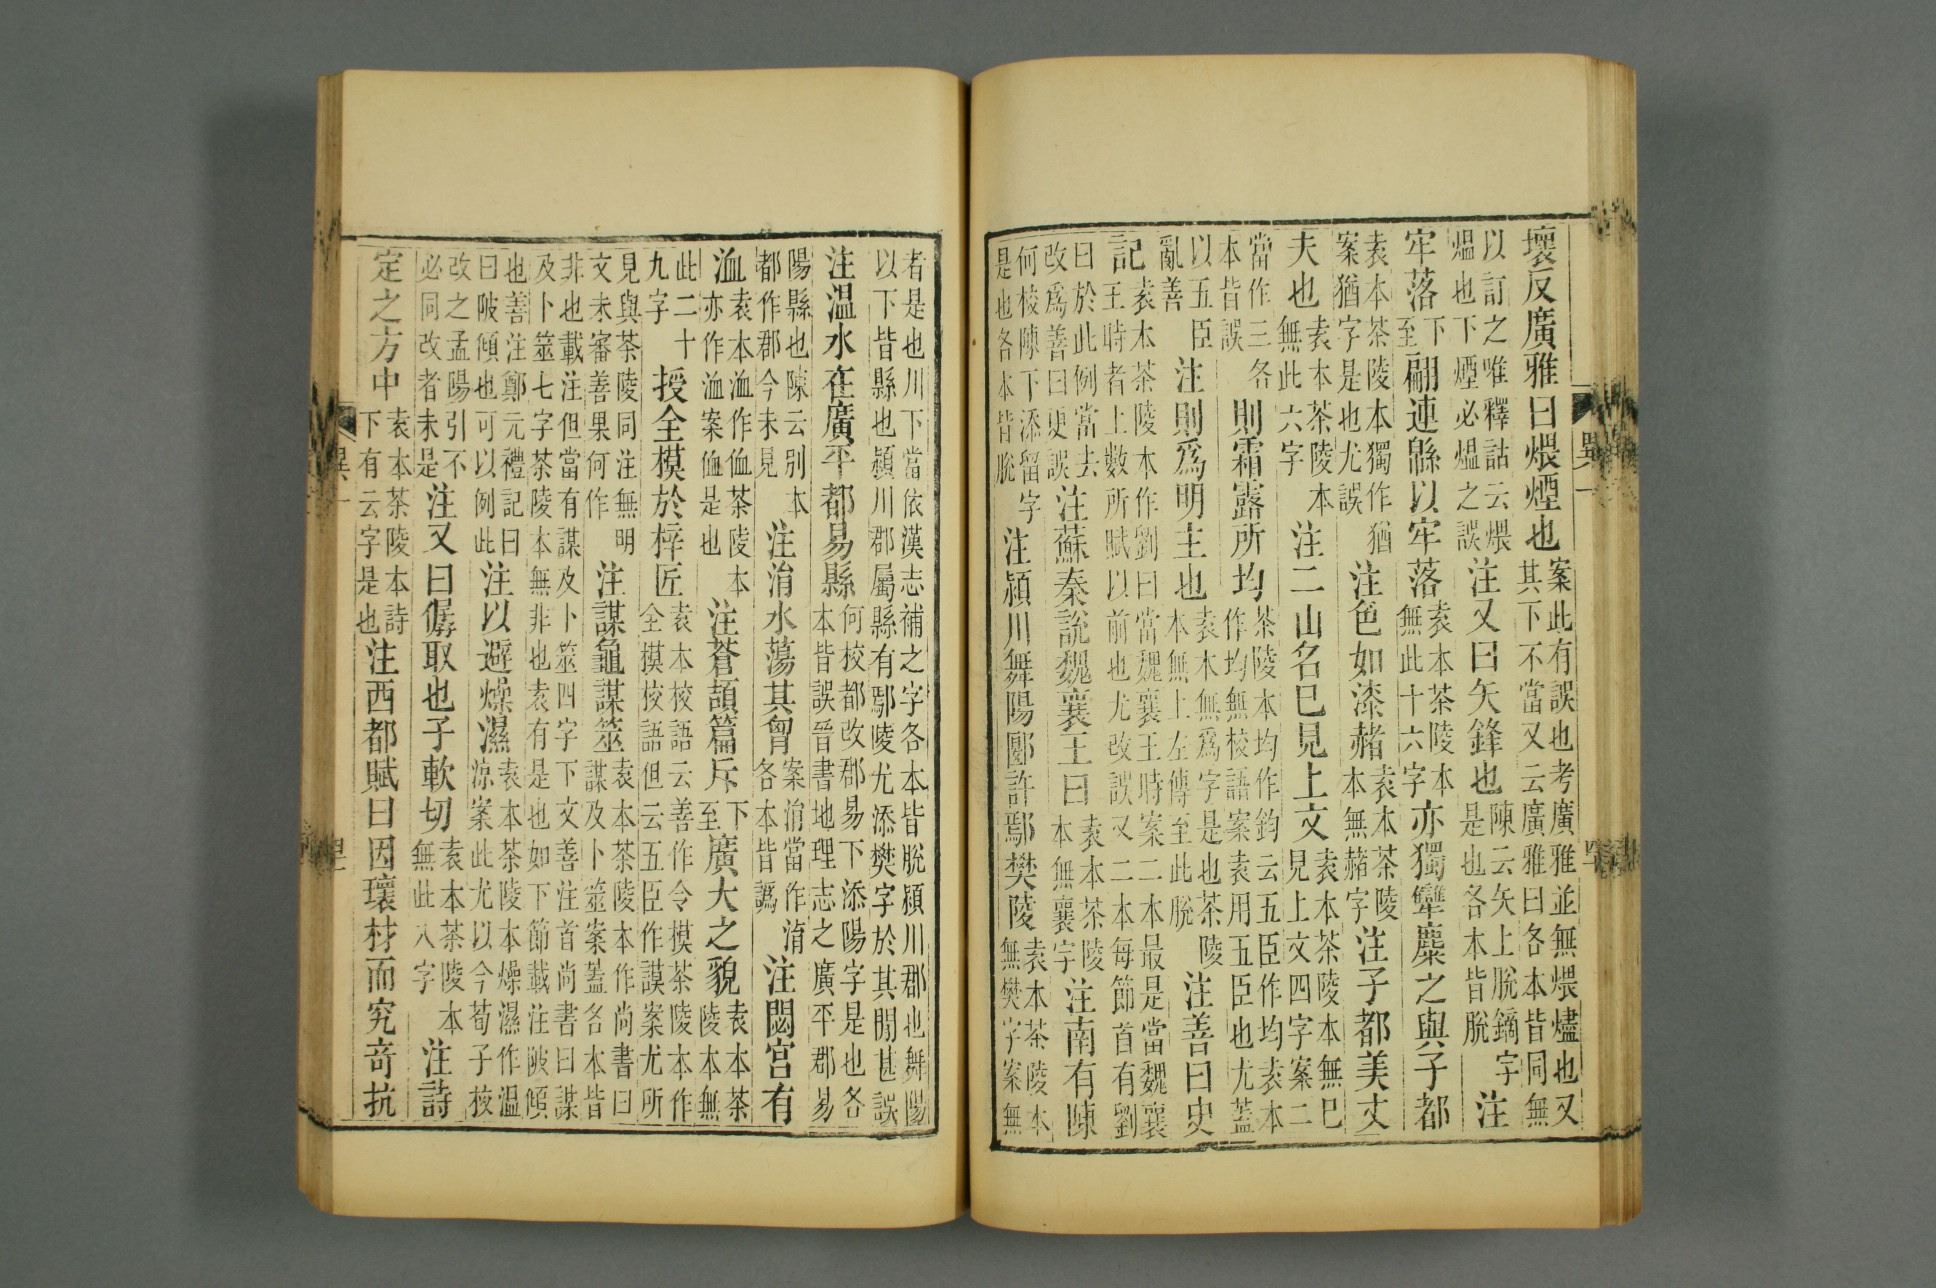 壞反廣雅曰煨煙也案此有誤也考廣雅並無煨燼也又其下不當又云廣雅曰各本皆同無
以訂之唯釋詁云煨熅也下煙必熅之誤注又曰矢鋒也陳云矢上脫鏑字是也各本皆脫注
牢落下至翩連緜以牢落袁本茶陵本無此十六字亦獨犫麋之與子都
袁本茶陵本獨作猶案猶字是也尤誤注色如漆赭袁本茶陵本無赭字注子都美丈
夫也袁本茶陵本無此六字注二山名巳見上文袁本茶陵本無巳見上文四字案二
當作三各本皆誤則霜露所均茶陵本均作鈞云五臣作均袁本作均無校語案袁用五臣也尤蓋
以五臣亂善注則爲明主也袁本無爲字是也茶陵本無上左傳至此脫注善曰史
記袁本茶陵本作劉曰當魏襄王時案二本最是當魏襄王時者上數所賦以前也尤改誤又二本每節首有劉
曰於此例當去改爲善曰更誤注蘇秦說魏襄王曰袁本茶陵本無襄字注南有陳
何校陳下添留字是也各本皆脫注潁川舞陽郾許鄢樊陵袁本茶陵本無樊字案無
者是也川下當依漢志補之字各本皆脫潁川郡也舞陽以下皆縣也潁川郡屬縣有鄢陵尤添樊字於其閒甚誤
注溫水在廣平都易縣何校都改郡易下添陽字是也各本皆誤晉書地理志之廣平郡易
陽縣也陳云別本都作郡今未見注淯水蕩其胷案淯當作淯各本皆譌注閟宮有
洫袁本洫作侐茶陵本亦作洫案侐是也注蒼頡篇斥下至廣大之貌袁本茶陵本無
此二十九字授全模於梓匠袁本校語云善作令模茶陵本作全模校語但云五臣作謨案尤所
見與茶陵同注無明文未審善果何作注謀龜謀筮袁本茶陵本作尚書曰謀及卜筮案蓋各本皆
非也載注但當有謀及卜筮四字下文善注首尚書曰謀及卜筮七字茶陵本無非也袁有是也如下節載注陂傾
也善注鄭元禮記曰曰陂傾也可以例此注以避燥濕袁本茶陵本燥濕作溫涼案此尤以今荀子校
改之孟陽引不必同改者未是注又曰僝取也子軟切袁本茶陵本無此八字注詩
定之方中袁本茶陵本詩下有云字是也注西都賦曰因瓌材而究奇抗